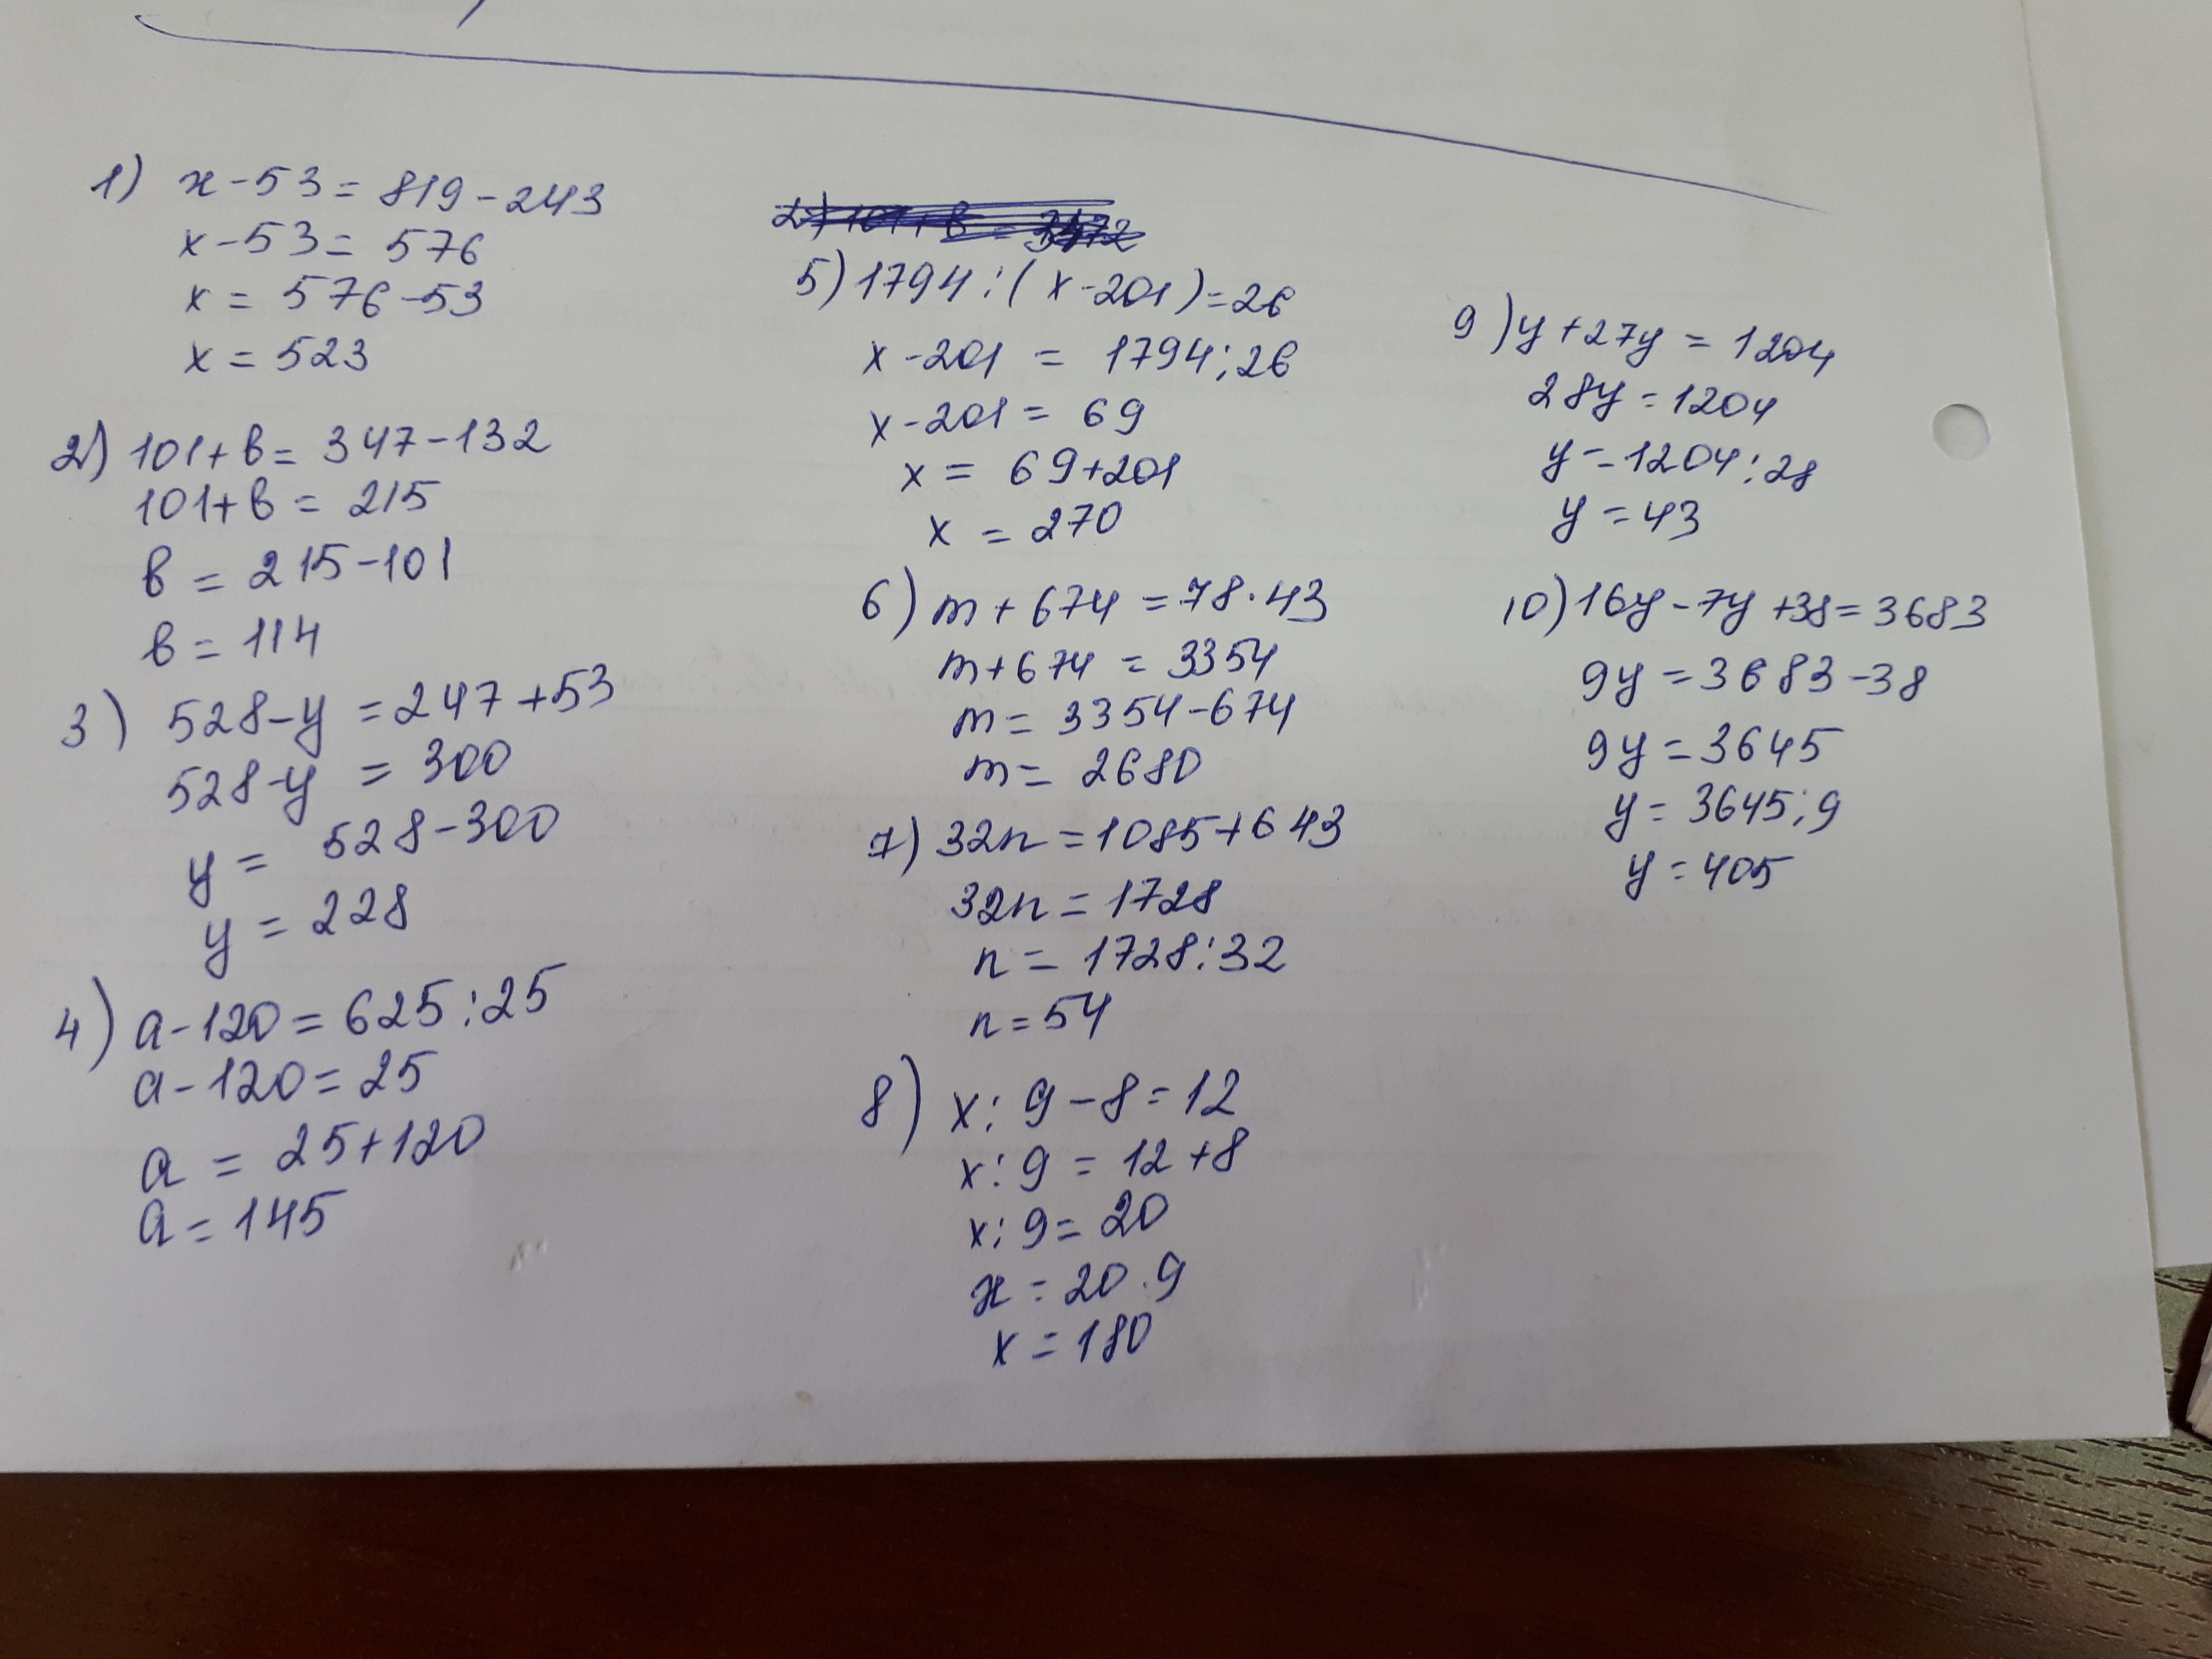 1) x-53=819-243
x-53=576
x=576-53
x=523
2) 101+в=347-132
101+в=215
в=215-101
в=114
3) 528-y=247+53
528-y=300
y=528-300
y=228
4) a-120=625:25
a-120=25
a=25+120
a=145
5) 1794:(x-201)=26
x-201=1794:26
x-201=69
x=69+201
x=270
6) m+674=78·43
m+674=3354
m=3354-674
m=2680
7) 32n=1085+643
32n=1728
n=1728:32
n=54
8) x:9-8=12
x:9=12+8
x:9=20
x=20·9
x=180
9) y+27y=1204
28y=1204
y=1204:28
y=43
10) 16y-7y+38=3683
9y=3683-38
9y=3645
y=3645:9
y=405